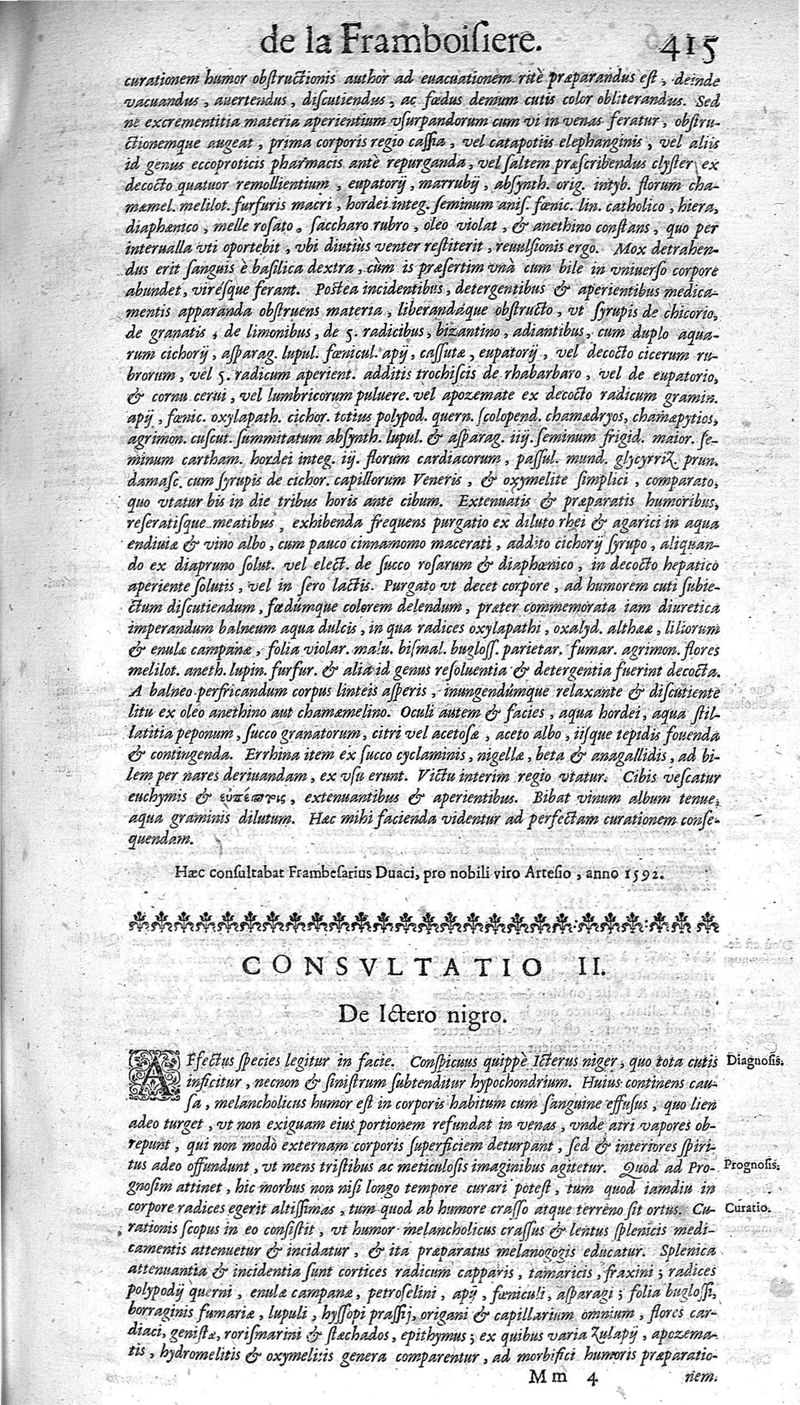 de la Framboiſiere. 415
curationem humor obſtructionis author ad euacuationem ritè præparandus eſt, deinde
vacuandus, auertendus, diſcutiendus, ac fœdus demum cutis color obliterandus. Sed
ne excrementitia materia aperientium vſurpandorum cum vi in venas feratur, obſtru-
ctionemque augeat, prima corporis regio caſſia, vel catapotiis elephanginis, vel aliis
id genus eccoproticis pharmacis antè repurganda, vel ſaltem præſcribendus clyſter ex
decocto quatuor remollientium, eupatorij, marrubij, abſynth. orig. intyb. florum cha-
mæmel. melilot. furfuris macri, hordei integ. ſeminum aniſ. fœnic. lin. catholico, hiera,
diaphœnico, melle roſato, ſaccharo rubro, oleo violat, & anethino conſtans, quo per
interualla vti oportebit, vbi diutiùs venter reſtiterit, reuulſionis ergo. Mox detrahen-
dus erit ſanguis è baſilica dextra, cùm is præſertim vnà cum bile in vniuerſo corpore
abundet, viréſque ferant. Poſtea incidentibus, detergentibus & aperientibus medica-
mentis apparanda obſtruens materia, liberandáque obſtructo, vt ſyrupis de chicorio,
de granatis, de limonibus, de 5. radicibus, bizantino, adiantibus, cum duplo aqua-
rum cichorij, aſparag. lupul. fœnicul. apij, caſſutæ, eupatorij, vel decocto cicerum ru-
brorum, vel 5. radicum aperient. additis trochiſcis de rhabarbaro, vel de eupatorio,
& cornu cerui, vel lumbricorum puluere. vel apozemate ex decocto radicum gramin.
apij, fœnic. oxylapath. cichor. totius polypod. quern. ſcolopend. chamædryos, chamæpytios,
agrimon. cuſcut. ſummitatum abſynth. lupul. & aſparag. iiij. ſeminum frigid. maior. ſe-
minum cartham. hordei integ. ij. florum cardiacorum, paſſul. mund. glycyrriz. prun.
damaſc. cum ſyrupis de cichor. capillorum Veneris, & oxymelite ſimplici, comparato,
quo vtatur bis in die tribus horis ante cibum. Extenuatis & præparatis humoribus,
reſeratiſque meatibus, exhibenda frequens purgatio ex diluto rhei & agarici in aqua
endiuiæ & vino albo, cum pauco cinnamomo macerati, addito cichorij ſyrupo, aliquan-
do ex diapruno ſolut. vel elect. de ſucco roſarum & diaphœnico, in decocto hepatico
aperiente ſolutis, vel in ſero lactis. Purgato vt decet corpore, ad humorem cuti ſubie-
ctum diſcutiendum, fœdúmque colorem delendum, præter commemorata iam diuretica
imperandum balneum aqua dulcis, in qua radices oxylapathi, oxalyd. althææ, liliorum
& enulæ campanæ, folia violar. malu. biſmal. bugloſſ. parietar. fumar. agrimon. flores
melilot. aneth. lupin. furfur. & alia id genus reſoluentia & detergentia fuerint decocta.
A balneo perfricandum corpus linteis aſperis, inungendúmque relaxante & diſcutiente
litu ex oleo anethino aut chamæmelino. Oculi autem & facies, aqua hordei, aqua ſtil-
latitia peponum, ſucco granatorum, citri vel acetoſæ, aceto albo, iiſque tepidis fouenda
& contingenda. Errhina item ex ſucco cyclaminis, nigellæ, beta & anagallidis, ad bi-
lem per nares deriuandam, ex vſu erunt. Victu interim regio vtatur. Cibis veſcatur
euchymis & εὐπέπτοις, extenuantibus & aperientibus. Bibat vinum album tenue,
aqua graminis dilutum. Hæc mihi facienda videntur ad perfectam curationem conſe-
quendam.
Hæc conſultabat Frambeſarius Duaci, pro nobili viro Arteſio, anno 1592.
CONSVLTATIO II.
De Ictero nigro.
AFfectus ſpecies legitur in facie. Conſpicuus quippè Icterus niger, quo tota cutis Diagnoſis.
inficitur, necnon & ſiniſtrum ſubtenditur hypochondrium. Huius continens cau-
ſa, melancholicus humor eſt in corporis habitum cum ſanguine effuſus, quo lien
adeo turget, vt non exiguam eius portionem refundat in venas, vnde atri vapores ob-
repunt, qui non modò externam corporis ſuperficiem deturpant, ſed & interiores ſpiri-
tus adeo offundunt, vt mens triſtibus ac meticuloſis imaginibus agitetur. Quod ad Pro- Prognoſis.
gnoſim attinet, hic morbus non niſi longo tempore curari poteſt, tum quod iamdiu in
corpore radices egerit altiſſimas, tum quod ab humore craſſo atque terreno ſit ortus. Cu- Curatio.
rationis ſcopus in eo conſiſtit, vt humor melancholicus craſſus & lentus ſplenicis medi-
camentis attenuetur & incidatur, & ita præparatus melanogogis educatur. Splenica
attenuantia & incidentia ſunt cortices radicum capparis, tamaricis, fraxini; radices
polypodij querni, enulæ campanæ, petroſelini, apij, fœniculi, aſparagi; folia bugloſſi,
borraginis fumariæ, lupuli, hyſſopi praſſij, origani & capillarium omnium, flores car-
diaci, geniſtæ, roriſmarini & ſtæchados, epithymus; ex quibus varia zulapij, apozema-
tis, hydromelitis & oxymelitis genera comparentur, ad morbifici humoris præparatio-
Mm 4 nem.